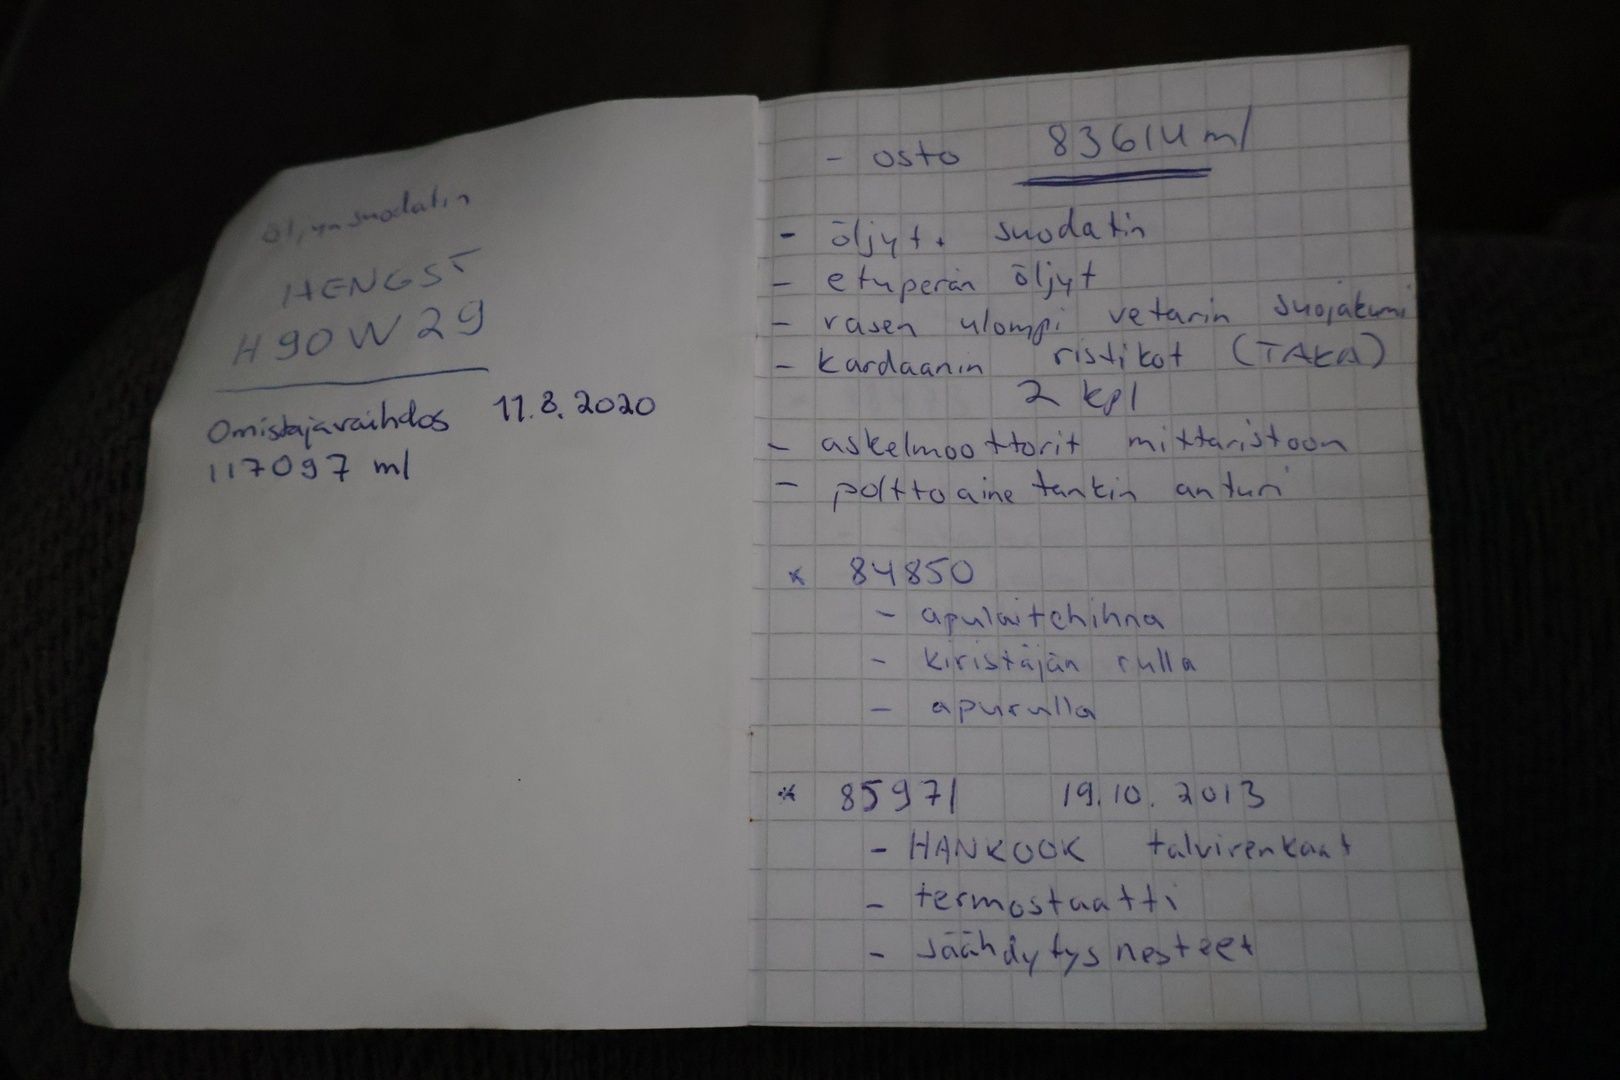 Öljynsuodatin
HENGST
H90W29
Omistajavaihdos 11.8.2020
117097 ml
- osto 83614 ml
- öljyt + suodatin
- etuperän öljyt
- vasen ulompi vetarin suojakumi
- kardaanin ristikot (TAKA)
2 kpl
- askelmoottorit mittaristoon
- polttoaine tankin anturi
* 84850
- apulaitehihna
- kiristäjän rulla
- apurulla
* 85971 19.10.2013
- HANKOOK talvirenkaat
- termostaatti
- jäähdytysnesteet